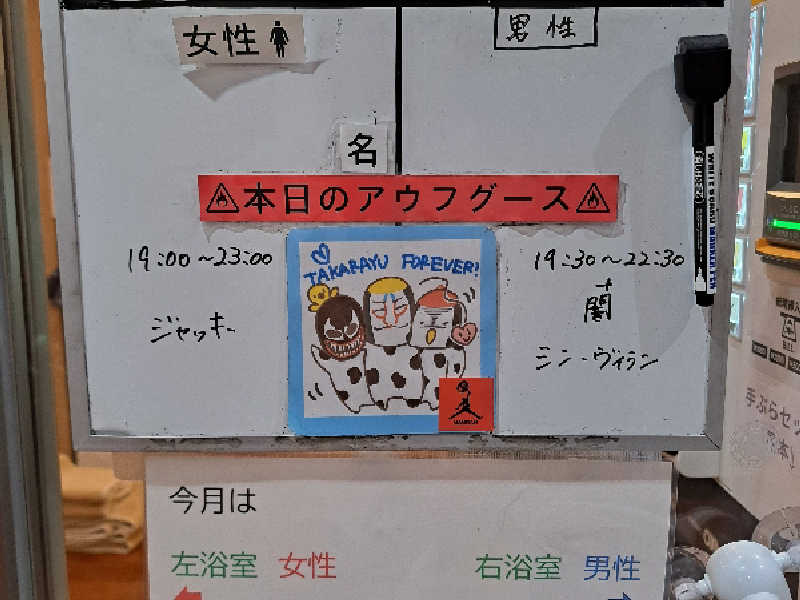 女性
男性
名
本日のアウフグース
19:00～23:00
ジャッキー
TAKARAYU FOREVER!
19:30～22:30
シン・ヴィラン
手ぶらセッ
今月は
左浴室 女性
右浴室 男性